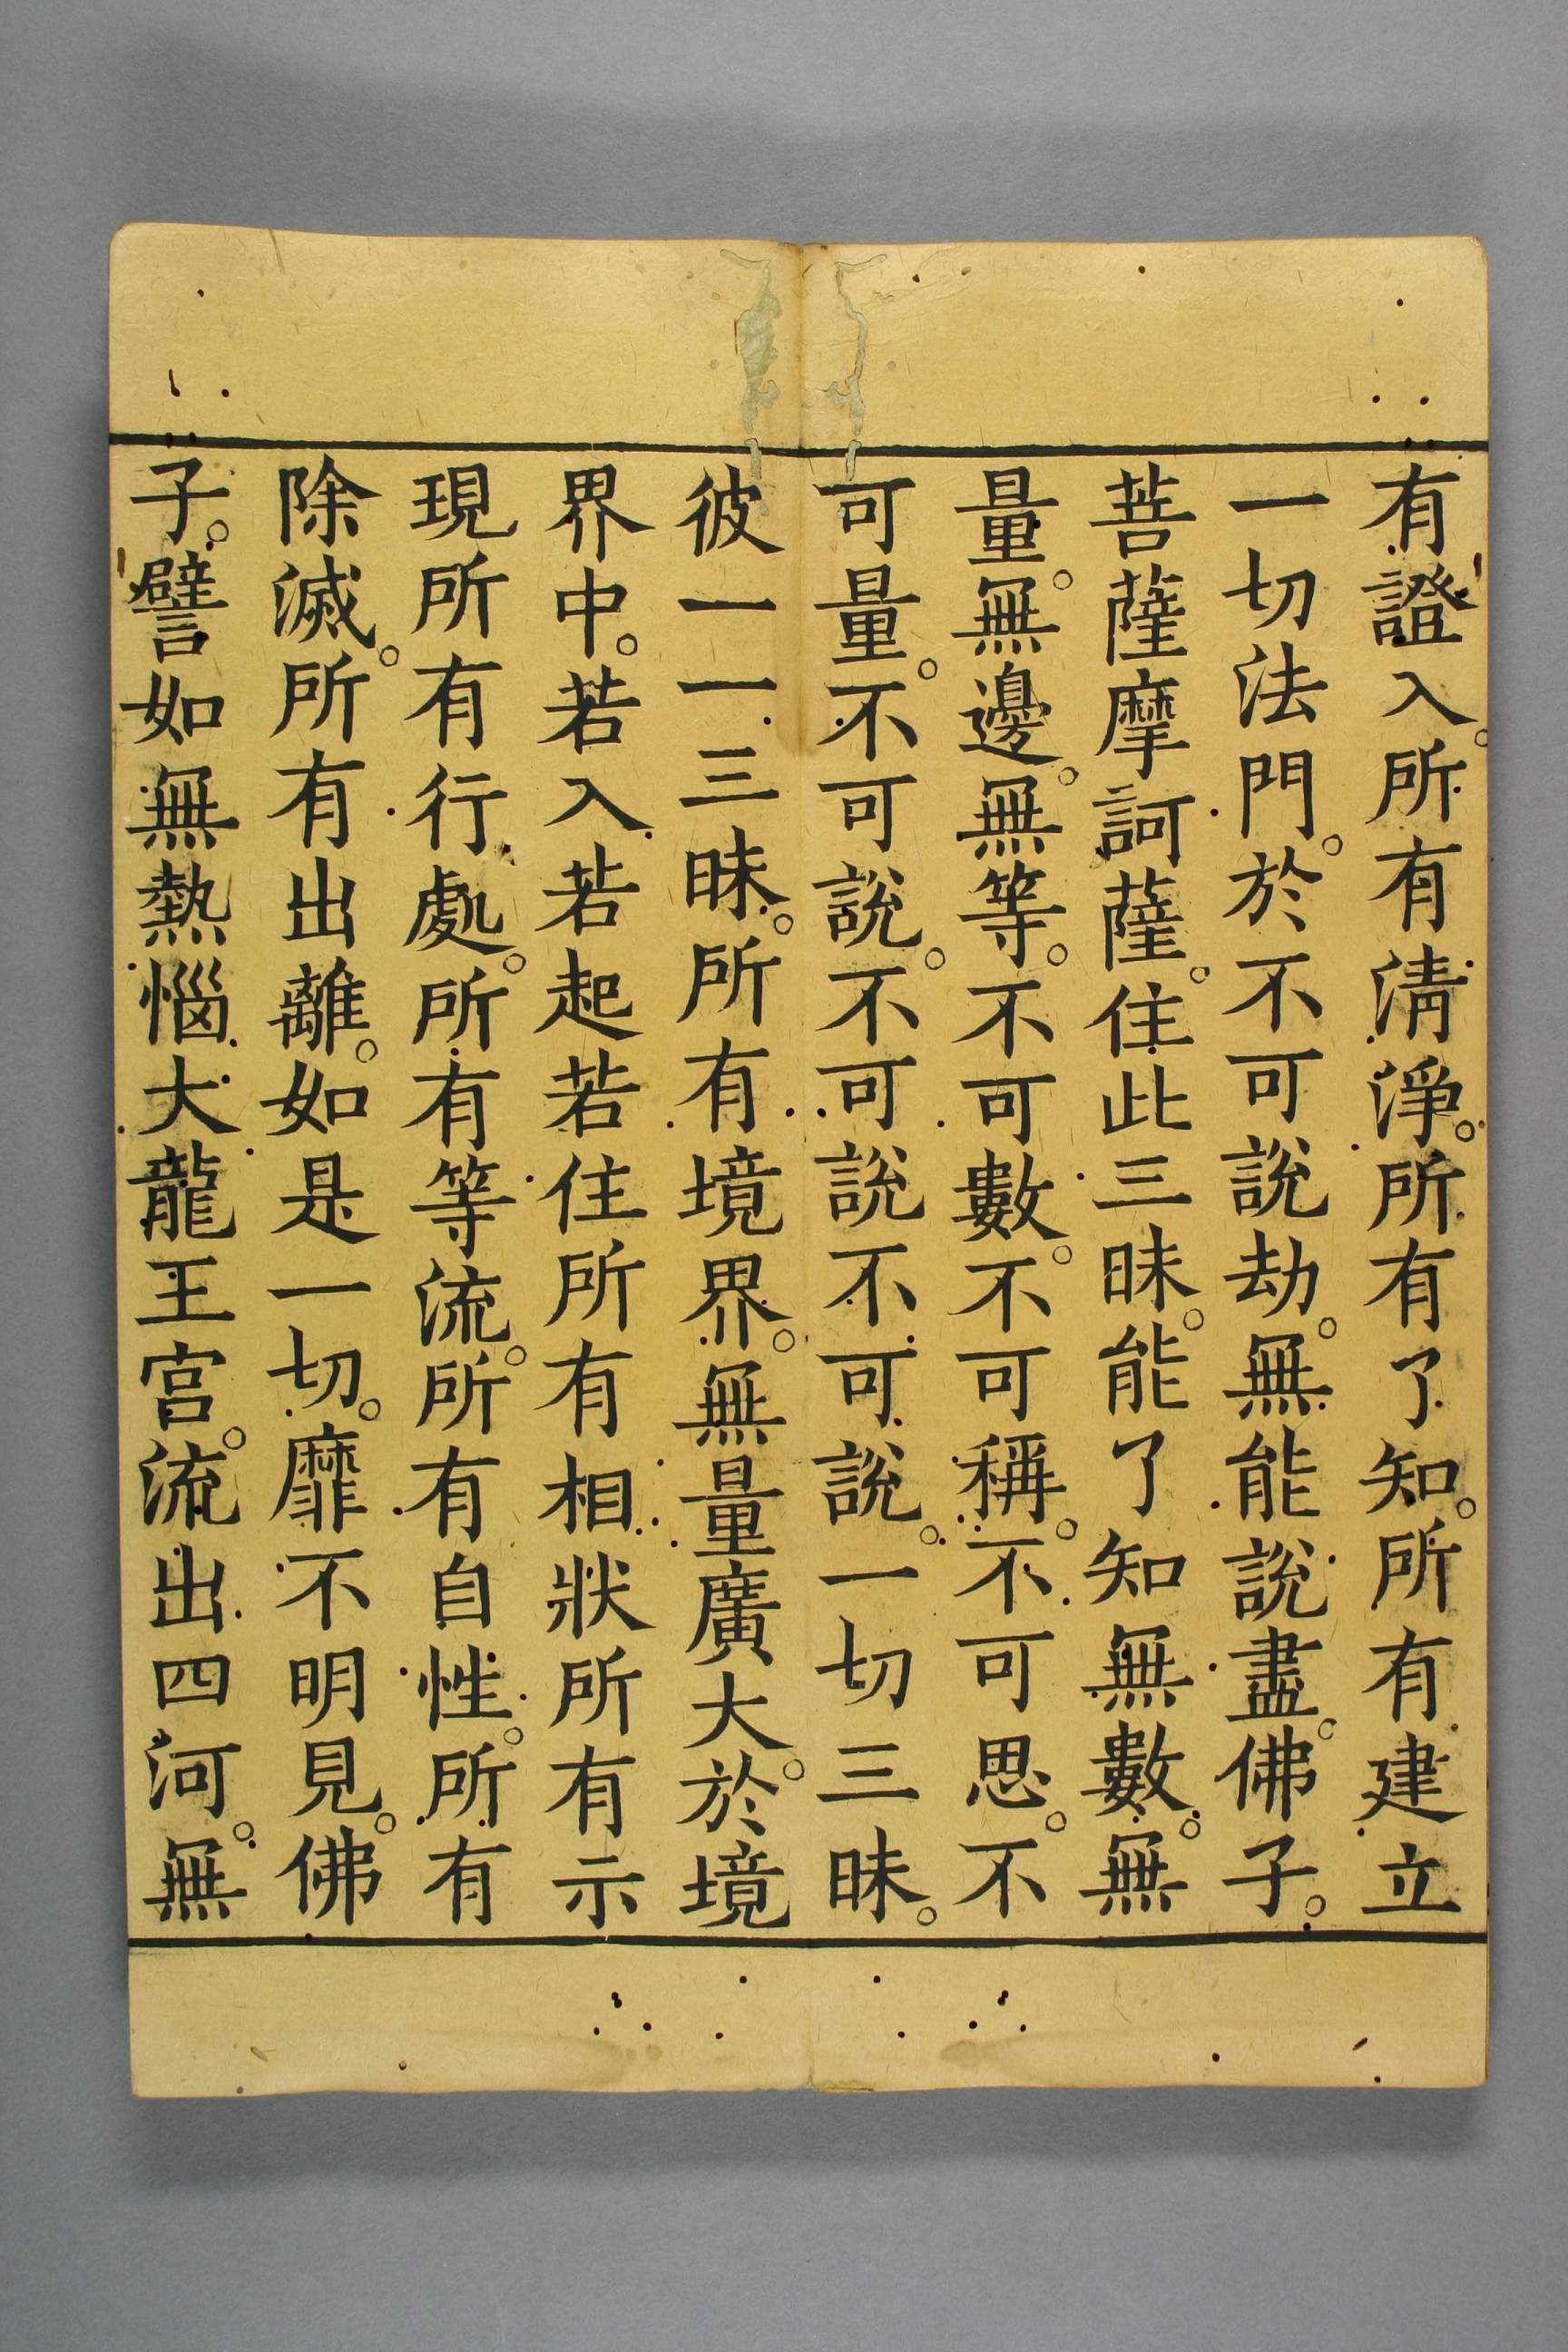 有證入。所有淸淨。所有了知。所有建立
一切法門。於不可說劫。無能說盡。佛子。
菩薩摩訶薩。住此三昧。能了知無數。無
量。無邊。無等。不可數。不可稱。不可思。不
可量。不可說。不可說不可說。一切三昧。
彼一一三昧。所有境界。無量廣大。於境
界中。若入若起若住所有相狀所有示
現所有行處。所有等流。所有自性。所有
除滅。所有出離。如是一切。靡不明見。佛
子。譬如無熱惱大龍王宮。流出四河。無